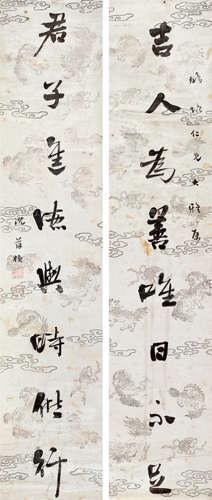 吉人為善唯日不足
仁兄大雅屬
君子進德與時偕行
沈葆楨